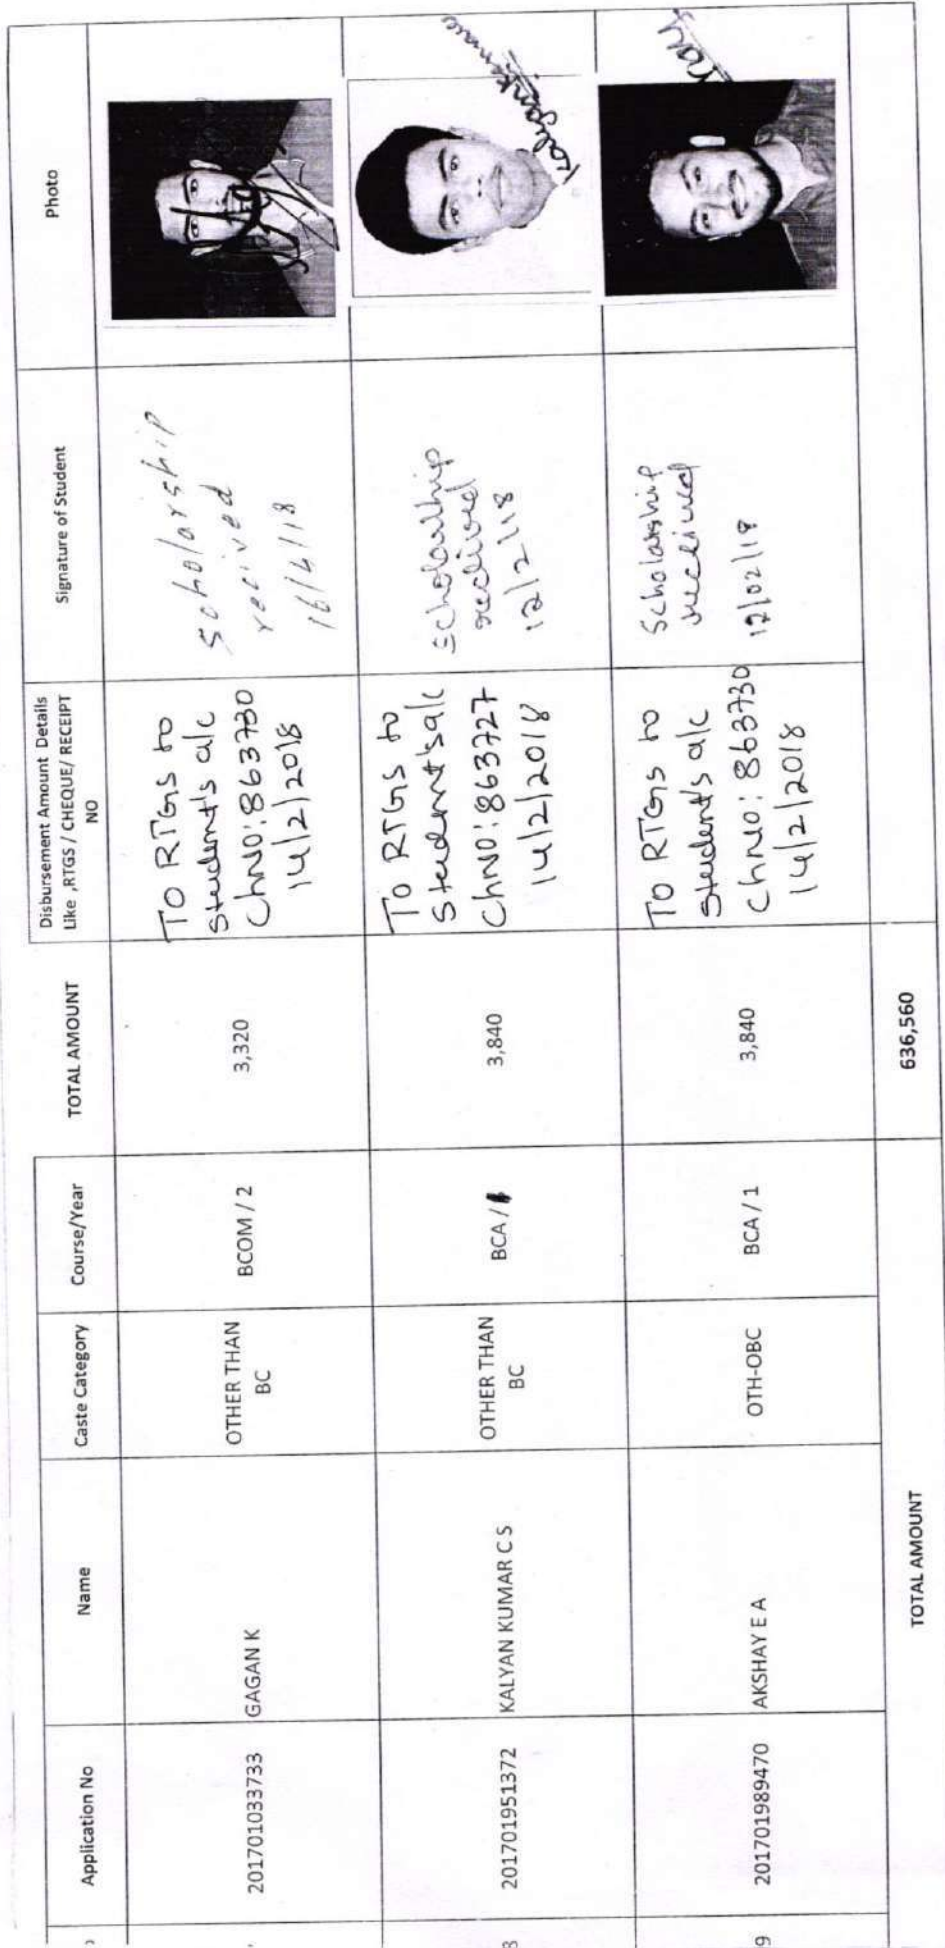 Application No
Name
Caste Category
Course/Year
TOTAL AMOUNT
Disbursement Amount Details
Like ,RTGS / CHEQUE/ RECEIPT
NO
Signature of Student
Photo
201701033733
GAGAN K
OTHER THAN
BC
BCOM / 2
3,320
To RTGS to
Student's a/c
ChNO:863730
14/2/2018
Scholarship
recived
8
201701951372
KALYAN KUMAR C S
OTHER THAN
BC
BCA /
3,840
To RTGS to
Student's a/c
ChNO:863727
14/2/2018
Scholarhip
received
12/2/18
Kalyankumar
9
201701989470
AKSHAY E A
OTH-OBC
BCA / 1
3,840
To RTGS to
Student's a/c
ChNO: 863730
14/2/2018
Scholarship
received
12/02/18
TOTAL AMOUNT
636,560